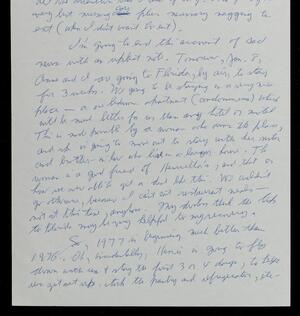 way but nursing care plus nursing nagging to
eat (when I didn't want to eat).
I'm going to end this account of sad
news with an upbeat note. Tomorrow, Jan. 8,
and I are going to Florida, by air, to stay
for 3 weeks. We going to be staying in a very nice
place — a one bedroom apartment (condominium) which
will be much better for us than any hotel or motel
This is made possible by a woman who owns the place,
and who is going to move out to stay with her sister
and brother-in-law who live in a bigger house. The
woman is a good friend of Henrietta's, and that is
how we were able to get a deal like this. We wouldn't
go otherwise, because I can't eat restaurant meals —
not at this time, anyhow. My doctors think the trip
to Florida may be very helpful to my recovery.
So, 1977 is beginning much better than
1976. Oh, incidentally, Henri is going to fly
down with us & stay the first 3 or 4 days, to help
us get set up, stock the pantry and refrigerator, etc—